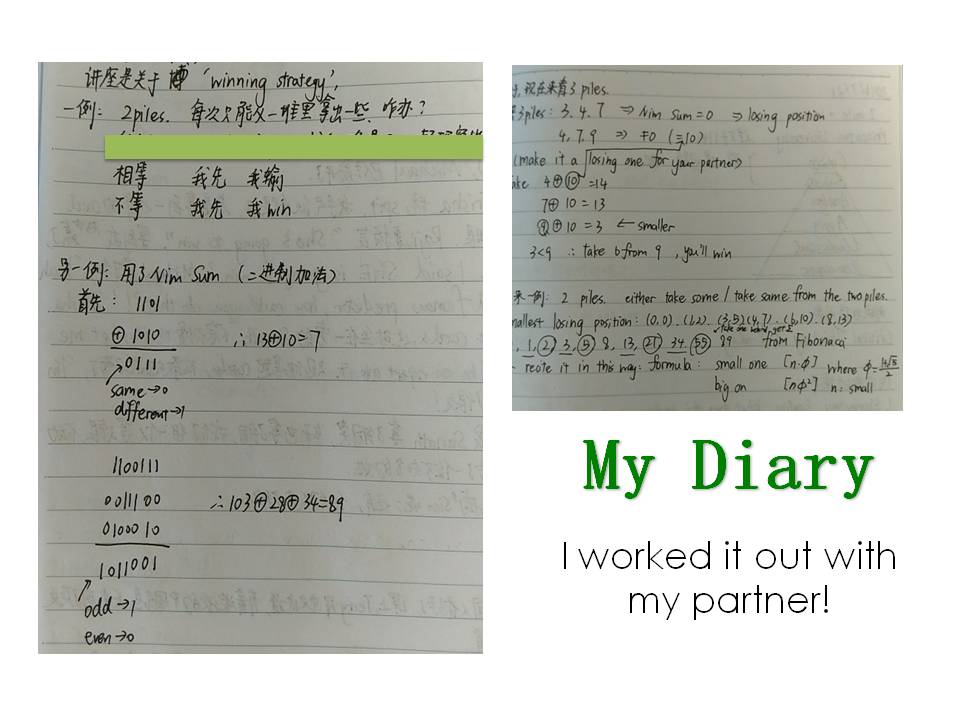 讲座是关于 博 'winning strategy',
一例: 2piles. 每次只能从一堆里拿出一些. 咋办?
相等 我先 我输
不等 我先 我win
另一例: 用了Nim Sum (二进制加法)
首先: 1101
⊕ 1010 ∴ 13⊕10=7
0111
same→0
different→1
1100111
0011100 ∴ 103⊕28⊕34=89
0100010
1011001
odd→1
even→0
现在来看3 piles.
3piles: 3.4.7 ⇒ Nim Sum=0 ⇒ losing position
4.7.9 ⇒ ≠0 (=10)
(make it a losing one for your partner)
4⊕10=14
7⊕10=13
9⊕10=3 ← smaller
3<9 ∴ take 6 from 9, you'll win
来一例: 2 piles. either take some / take same from the two piles.
mallest losing position: (0,0). (1,2). (3,5) (4,7). (6,10). (8,13)
1, 2, 3, 5, 8, 13, 21, 34, 55, 89 from Fibonacci
reote it in this way: formula: small one [n·ϕ] where ϕ=(1+√5)/2
big on [nϕ²] n: small
My Diary
I worked it out with
my partner!